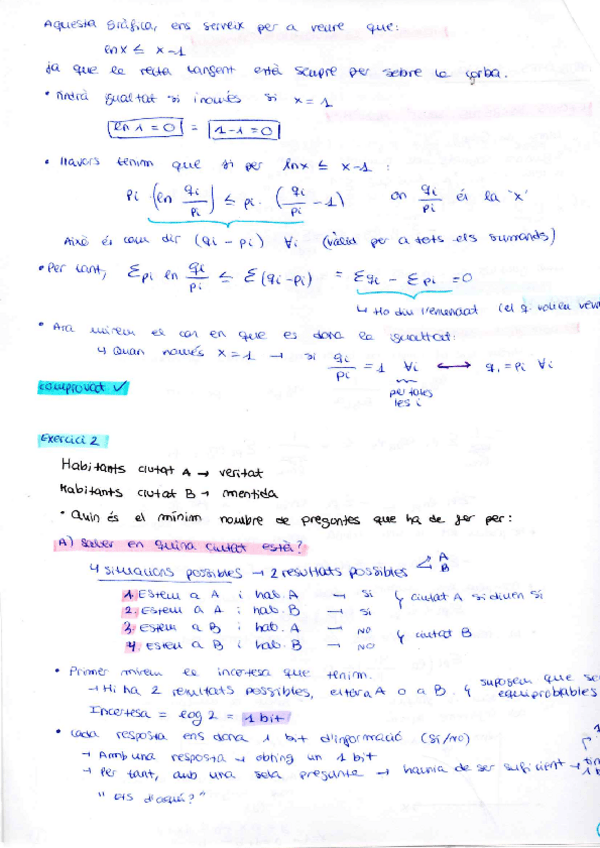 Aquesta gràfica, ens serveix per a veure que:
ln x ≤ x-1
ja que la recta tangent està sempre per sobre la corba.
• Tindrà igualtat si i només si x = 1
ln 1 = 0 = 1-1 = 0
• Llavors tenim que si per ln x ≤ x-1 :
pi (ln qi/pi) ≤ pi · (qi/pi - 1) on qi/pi és la "x"
Això és com dir (qi - pi) ∀i (vàlid per a tots els sumands)
• Per tant, Σpi ln qi/pi ≤ Σ(qi-pi) = Σqi - Σpi = 0
↳ Ho diu l'enunciat (el q volíem
• Ara mirem el cas en que es dona la igualtat:
↳ Quan només x = 1 → si qi/pi = 1 ∀i ⟷ qi = pi ∀i
per totes
les i
comprovat ✓
Exercici 2
Habitants ciutat A → veritat
Habitants ciutat B → mentida
• Quin és el mínim nombre de preguntes que ha de fer per:
A) Saber en quina ciutat està?
4 situacions possibles → 2 resultats possibles A B
1. Estem a A i hab. A → SI ciutat A si diuen sí
2. Estem a A i hab. B → SI
3. Estem a B i hab. A → NO ciutat B
4. Estem a B i hab. B → NO
• Primer mirem la incertesa que tenim.
→ Hi ha 2 resultats possibles, està a A o a B. suposem que
equiprobables
Incertesa = log 2 = 1 bit
• Cada resposta ens dona 1 bit d'informació (sí/no)
→ Amb una resposta → obtinc un 1 bit
→ Per tant, amb una sola pregunta → hauria de ser suficient →
"Ets d'aquí?"